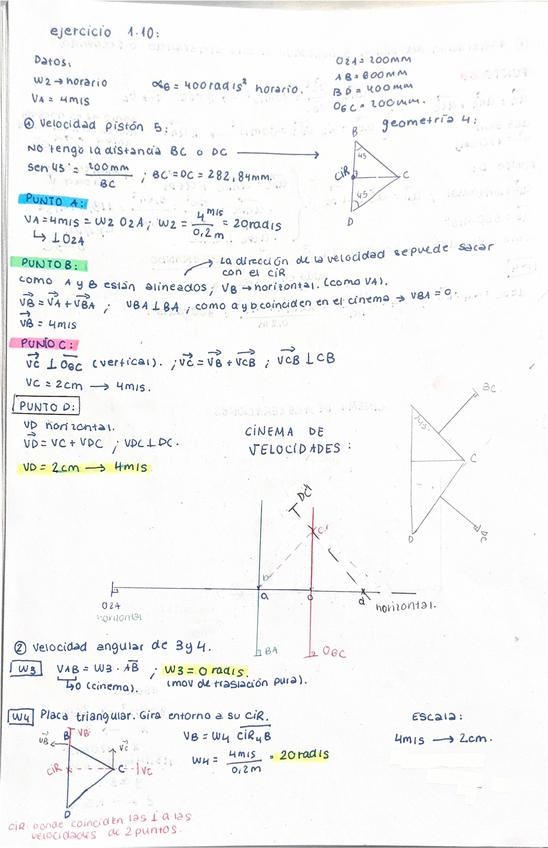 ejercicio 1.10:
Datos:
W2 → horario
α6 = 400 rad/s² horario.
VA = 4m/s
O2A = 200mm
AB = 600mm
BD = 400mm
O6C = 200mm.
① Velocidad pistón 5:
geometría 4:
NO tengo la distancia BC o DC →
sen 45° = 200mm / BC ; BC = DC = 282,84mm.
B
45
CIR
C
45°
D
PUNTO A:
VA = 4m/s = W2 O2A ; W2 = 4m/s / 0,2m = 20rad/s
↳ ⊥ O2A
PUNTO B:
→ La dirección de la velocidad se puede sacar
con el CIR
como A y B están alineados, VB → horizontal. (como VA).
VB = VA + VBA ; VBA ⊥ BA, como a y b coinciden en el cinema → VBA = 0.
VB = 4m/s
PUNTO C:
VC ⊥ O6C (vertical). ; VC = VB + VCB ; VCB ⊥ CB
VC = 2cm → 4m/s.
PUNTO D:
VD horizontal.
VD = VC + VDC ; VDC ⊥ DC.
VD = 2cm → 4m/s
CINEMA DE
VELOCIDADES:
BC
45°
C
D
DC
DC
c
b
O2A
a
o
d
horizontal.
horizontal
BA
O6C
② Velocidad angular de 3 y 4.
W3
VAB = W3 · AB ; W3 = 0 rad/s.
↳ 0 (cinema).
(mov de traslación pura).
W4
Placa triangular. Gira entorno a su CIR.
B
VB
VB
VC
CIR
C
VC
D
VB = W4 CIR4B
W4 = 4m/s / 0,2m = 20rad/s
Escala:
4m/s → 2cm.
CIR donde coinciden las ⊥ a las
velocidades de 2 puntos.